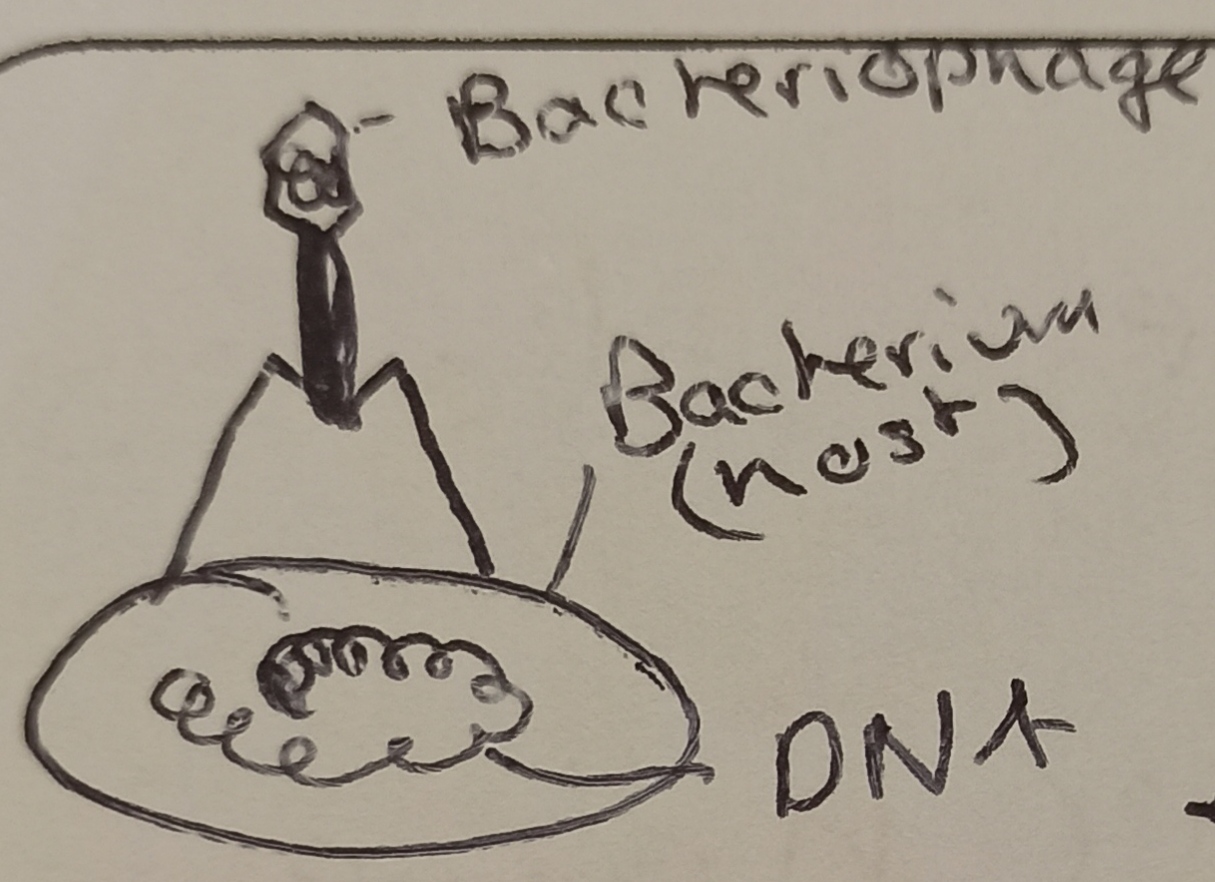 Bacteriophage
Bacterium
(host)
DNA